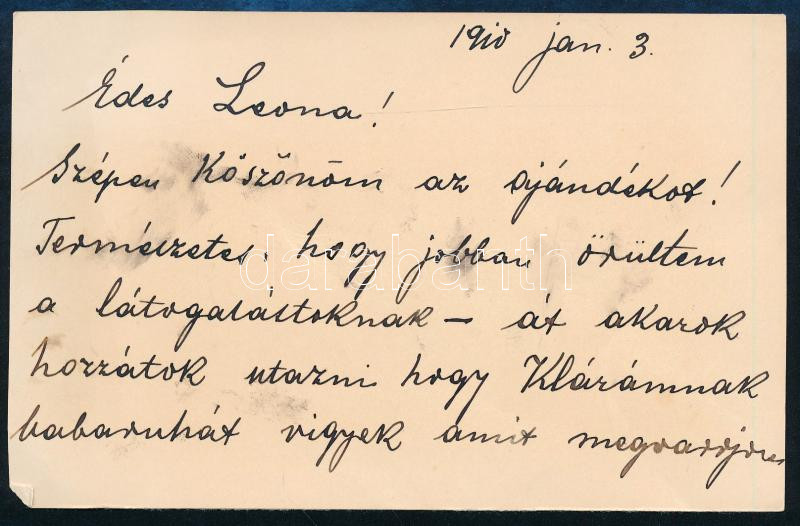 1910 jan. 3.
Édes Leona!
Szépen Köszönöm az ajándékot!
Természetes, hogy jobban örültem
a látogatástoknak – át akarok
hozzátok utazni hogy Klárámnak
babaruhát vigyek amit
darabanth